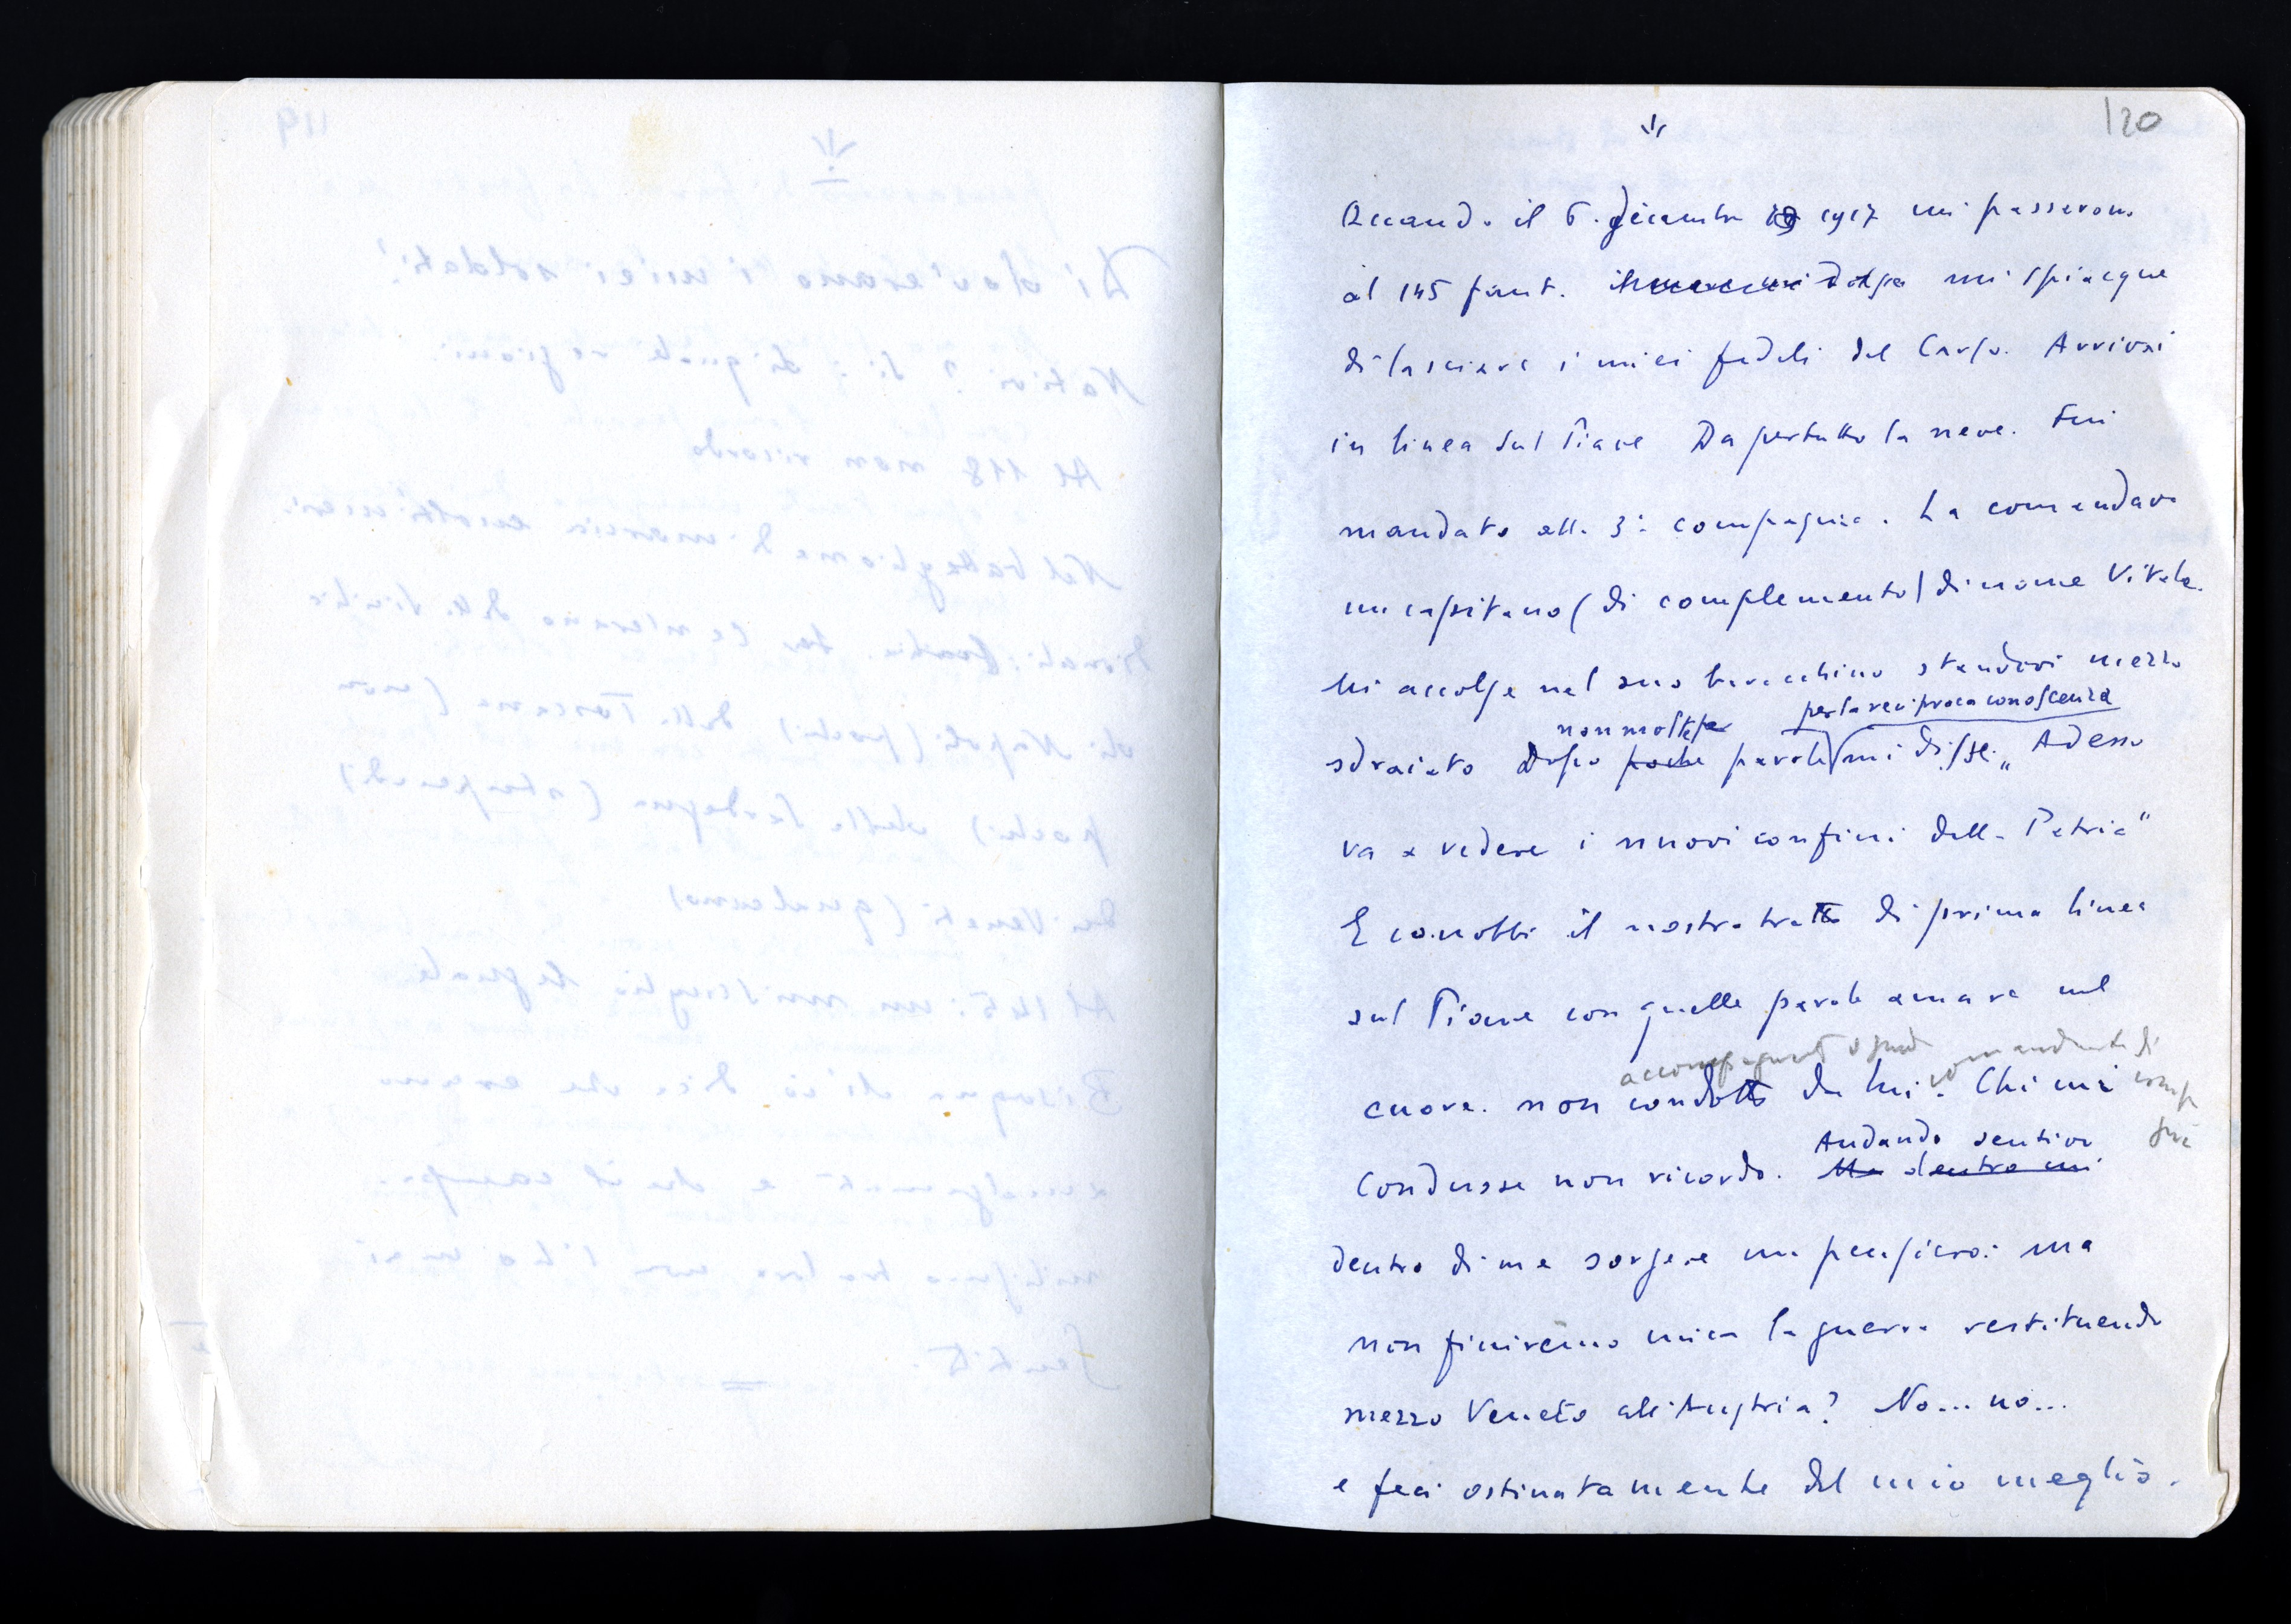 120
Quando il 6. dicembre 1917 mi passarono
al 145 fant. mi spiacque
di lasciare i miei fedeli del Carso. Arrivai
in linea sul Piave Da pertutto la neve. Fui
mandato alla 3ª compagnia. La comandava
un capitano (di complemento) di nome Vitale.
Mi accolse nel suo baracchino standovi mezzo
non molte per la reciproca conoscenza
sdraiato Dopo poche parole mi disse: „Adesso
va a vedere i nuovi confini della Patria"
E conobbi il nostro tratto di prima linea
sul Piave con quelle parole amare nel
accompagnato comandante di
cuore. non condotto da lui. Chi mi comp
Andando sentivo gnia
condusse non ricordo. Ma dentro mi
dentro di me sorgere un pensiero: ma
non finiremo mica la guerra restituendo
mezzo Veneto all'Austria? No... no...
e feci ostinatamente del mio meglio.